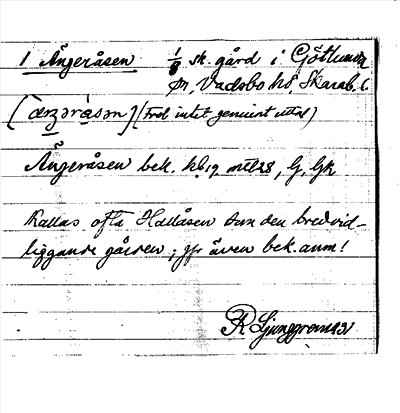 1 Ängeråsen 1/8 sk. gård i Götlunda
sn, Vadsbo hd Skarab. l.
[æŋəråsən] (Trol intet genuint uttal)
Ängeråsen bek. hb19 mtl28, G, Gk
Kallas ofta Hallåsen som den bredvid-
liggande gården; jfr även bek. anm!
R Ljunggren 1931